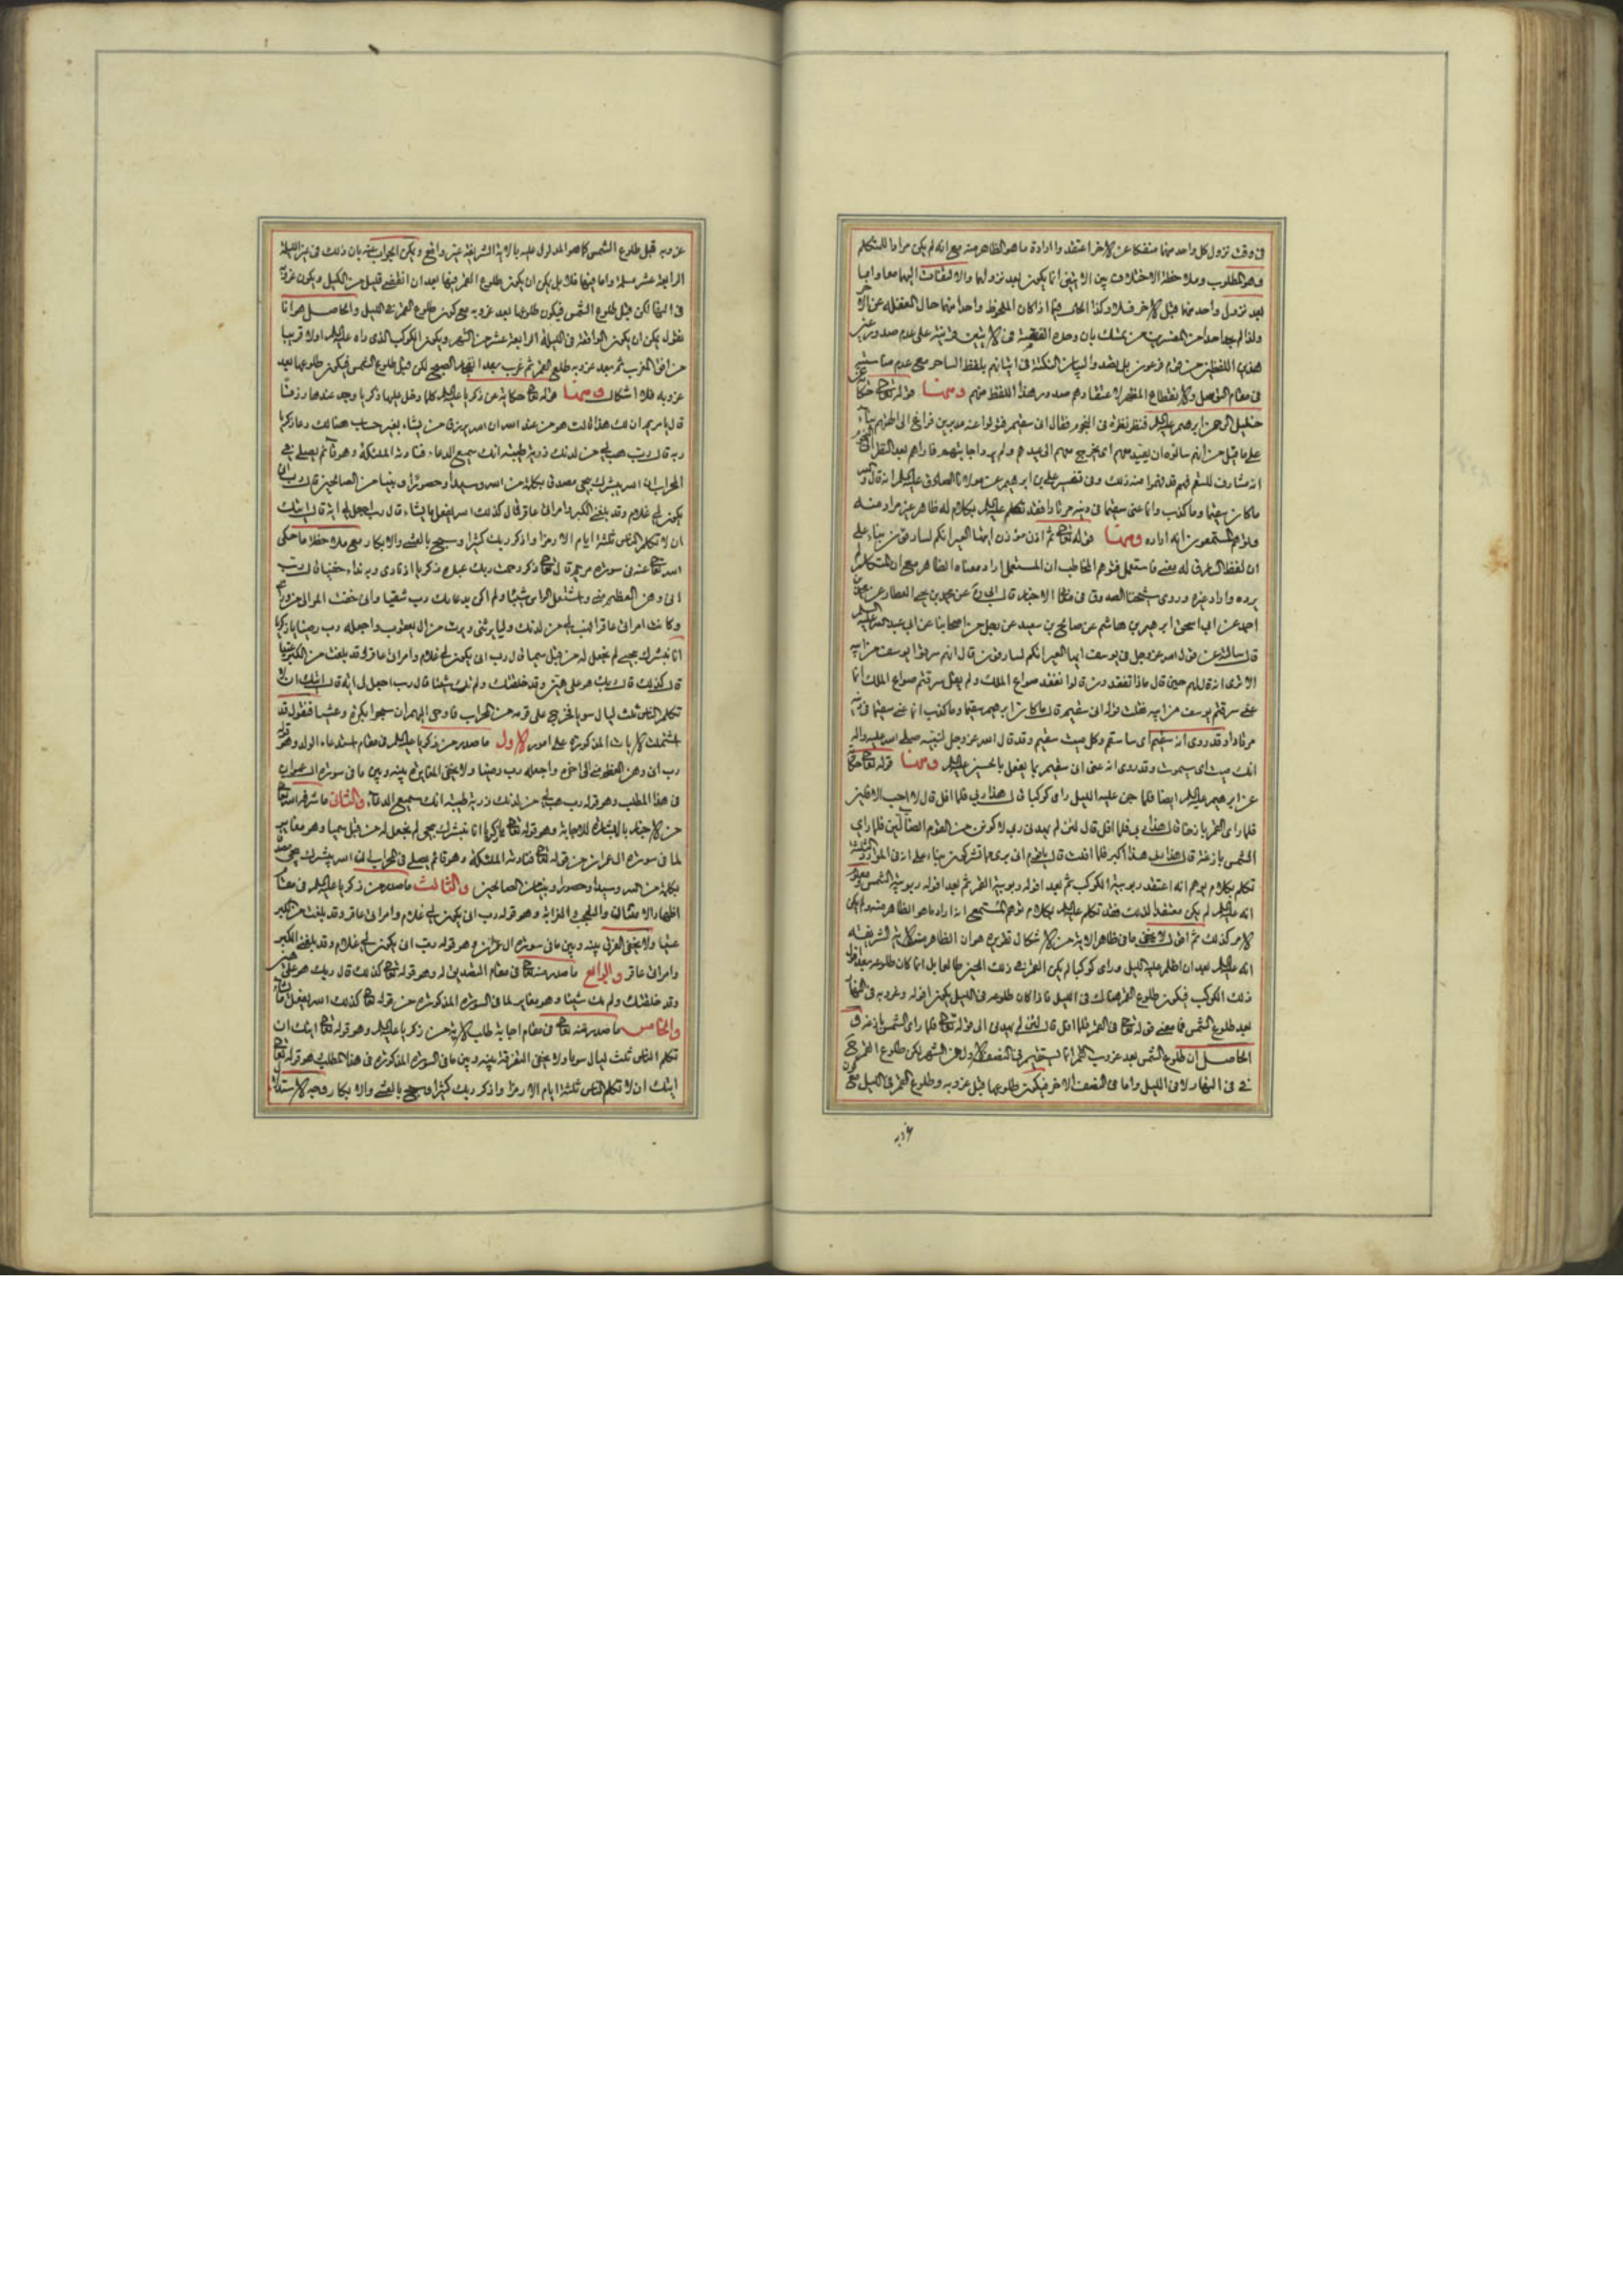 في وقت نزول كل واحد منهما منفكا عن الاخر اعتقدوا ارادة ما هو الظاهر منه مع انه لم يكن مرادا للمتكلم
وهو المطلوب وملاحظة الاختلاف بين الايتين انما يكون بعد نزولهما والالتفات اليهما معا واما
بعد نزول واحد منهما قبل الاخر فلا وكذا الحال فيما اذا كان الملحوظ واحدا منهما حال الغفلة عن الاخر
ولذا لم يجد احدا من المفسرين من تمسك بان وحدة القضية في الايتين قرينة على عدم صدور عين
هذين اللفظين من قوم فرعون بل بصدد بيان النكتة في اتيانهم بلفظ الساحر مع عدم مناسبته
في مقام التوصل والانقطاع المقتضي لاعتقادهم صدور هذا اللفظ منهم ومنها قوله تعالى حكاية عن
خليل الرحمن ابرهيم عليه السلام فنظر نظرة في النجوم فقال اني سقيم فتولوا عنه مدبرين فراغ الى الهتهم بناء
على ما قيل من انهم سالوه ان يعيد معهم اي يخرج معهم الى عيدهم ولم يرد اجابتهم فاراهم بعد النظر الى النجوم
انه مشارف للسقم فهم قد فهموا منه ذلك وفي تفسير علي بن ابرهيم عن مولانا الصادق عليه السلام انه قال والله
ما كان سقيما وما كذب وانما عنى سقيما في دينه مرتادا فقد تكلم عليه السلام بكلام له ظاهر غير مراد منه
وتوهم المستمعون انه اراده ومنها قوله تعالى ثم اذن مؤذن ايتها العير انكم لسارقون بناء على
ان لفظ السارق له معنى فاستعمل فتوهم المخاطب ان المستعمل اراد معناه الظاهر مع ان المتكلم لم
يرده واراد غيره وروى شيخنا الصدوق في معاني الاخبار قال ابي ره عن محمد بن يحيى العطار عن محمد بن
احمد عن ابي اسحق ابرهيم بن هاشم عن صالح بن سعيد عن رجل من اصحابنا عن ابي عبد الله عليه السلام
قال سالته عن قول الله عز وجل في يوسف ايتها العير انكم لسارقون قال انهم سرقوا يوسف من ابيه
الا ترى انه قال لهم حين قال ماذا تفقدون قالوا نفقد صواع الملك ولم يقل سرقتم صواع الملك انما
عنى سرقتم يوسف من ابيه فقلت قوله اني سقيم قال ما كان ابرهيم سقيما وما كذب انما عنى سقيما في دينه
مرتادا وقد روي انه سقيم اي ساسقم وكل ميت سقيم وقد قال الله عز وجل لنبيه صلى الله عليه واله
انك ميت اي سيموت وقد روي انه عنى اني سقيم بما يفعل بالحسين عليه السلام ومنها قوله تعالى حكاية
عن ابرهيم عليه السلام ايضا فلما جن عليه الليل راى كوكبا قال هذا ربي فلما افل قال لا احب الافلين
فلما راى القمر بازغا قال هذا ربي فلما افل قال لئن لم يهدني ربي لاكونن من القوم الضالين فلما راى
الشمس بازغة قال هذا ربي هذا اكبر فلما افلت قال يا قوم اني بريء مما تشركون بناء على انه في الموارد الثلثة
تكلم بكلام يوهم انه اعتقد ربوبية الكوكب ثم بعد افوله ربوبية القمر ثم بعد افوله ربوبية الشمس ومعلوم
انه عليه السلام لم يكن معتقدا لذلك فقد تكلم عليه السلام بكلام توهم المستمع انه اراد ما هو الظاهر منه ولم يكن
الامر كذلك ثم اقول لا يخفى ما في ظاهر الاية من الاشكال تقريره هو ان الظاهر من الاية الشريفة
انه عليه السلام بعد ان اظلم عليه الليل وراى كوكبا لم يكن القمر في ذلك الحين طالعا بل انما كان طلوعه بعد افول
ذلك الكوكب فيكون طلوع القمر هناك في الليل فاذا كان طلوعه في الليل يكون افوله وغروبه في النهار
بعد طلوع الشمس فما معنى قوله تعالى في القمر فلما افل قال لئن لم يهدني الى قوله تعالى فلما راى الشمس بازغة و
الحاصل ان طلوع الشمس بعد غروب القمر انما يستقيم في النصف الاول من الشهر لكن طلوع القمر ح يكون
في النهار لا في الليل واما في النصف الاخر فيكون طلوعها قبل غروبه وطلوع القمر في الليل مع
غروبه
غروبه قبل طلوع الشمس كما هو المدلول عليه بالاية الشريفة غير واضح ويمكن الجواب عنه بان ذلك في غير الليلة
الرابعة عشر مسلم واما فيها فلا بل يمكن ان يكون طلوع القمر فيها بعد ان انقضى قليل من الليل ويكون غروبه
في النهار لكن قبل طلوع الشمس فيكون طلوعها بعد غروبه مع كون طلوع القمر في الليل والحاصل هو انا
نقول يمكن ان يكون الواقعة في الليلة الرابعة عشر من الشهر ويكون الكوكب الذي راه عليه السلام اولا قريبا
من افق المغرب ثم بعد غروبه طلع القمر ثم غرب بعد انفجار الصبح لكن قبل طلوع الشمس فيكون طلوعها بعد
غروبه فلا اشكال ومنها قوله تعالى حكاية عن زكريا عليه السلام كلما دخل عليها زكريا وجد عندها رزقا
قال يا مريم انى لك هذا قالت هو من عند الله ان الله يرزق من يشاء بغير حساب هنالك دعا زكريا
ربه قال رب هب لي من لدنك ذرية طيبة انك سميع الدعاء فنادته الملئكة وهو قائم يصلي في
المحراب ان الله يبشرك بيحيى مصدقا بكلمة من الله وسيدا وحصورا ونبيا من الصالحين قال رب انى
يكون لي غلام وقد بلغني الكبر وامراتي عاقر قال كذلك الله يفعل ما يشاء قال رب اجعل لي اية قال ايتك
ان لا تكلم الناس ثلثة ايام الا رمزا واذكر ربك كثيرا وسبح بالعشي والابكار مع ملاحظة ما حكى
الله تعالى عنه في سورة مريم قال تعالى ذكر رحمت ربك عبده زكريا اذ نادى ربه نداء خفيا قال رب
اني وهن العظم مني واشتعل الراس شيبا ولم اكن بدعائك رب شقيا واني خفت الموالي من ورائي
وكانت امراتي عاقرا فهب لي من لدنك وليا يرثني ويرث من ال يعقوب واجعله رب رضيا يا زكريا
انا نبشرك بيحيى لم نجعل له من قبل سميا قال رب انى يكون لي غلام وامراتي عاقر وقد بلغت من الكبر عتيا
قال كذلك قال ربك هو علي هين وقد خلقتك ولم تك شيئا قال رب اجعل لي اية قال ايتك ان لا
تكلم الناس ثلث ليال سويا فخرج على قومه من المحراب فاوحى اليهم ان سبحوا بكرة وعشيا فنقول قد
اشتملت الايات المذكورة على امور الاول ما صدر من زكريا عليه السلام في مقام استدعاء الولد وهو قوله
رب اني وهن العظم مني الى اخره واجعله رب رضيا ولا يخفى المغايرة بينه وبين ما في سورة ال عمران
في هذا المطلب وهو قوله رب هب لي من لدنك ذرية طيبة انك سميع الدعاء والثاني ما شرفه الله تعالى
من الاخبار بالبشارة للاجابة وهو قوله تعالى يا زكريا انا نبشرك بيحيى لم نجعل له من قبل سميا وهو مغاير
لما في سورة ال عمران من قوله تعالى فنادته الملئكة وهو قائم يصلي في المحراب ان الله يبشرك بيحيى مصدقا
بكلمة من الله وسيدا وحصورا ونبيا من الصالحين والثالث ما صدر من زكريا عليه السلام في مقام
اظهار الامتنان والتعجب والغرابة وهو قوله رب انى يكون لي غلام وامراتي عاقر وقد بلغت من الكبر
عتيا ولا يخفى الفرق بينه وبين ما في سورة ال عمران وهو قوله رب انى يكون لي غلام وقد بلغني الكبر
وامراتي عاقر والرابع ما صدر منه تعالى في مقام التصديق له وهو قوله تعالى كذلك قال ربك هو علي هين
وقد خلقتك ولم تك شيئا وهو مغاير لما في السورة المذكورة من قوله تعالى كذلك الله يفعل ما يشاء
والخامس ما صدر منه تعالى في مقام اجابة طلب الاية من زكريا عليه السلام وهو قوله تعالى ايتك ان
تكلم الناس ثلث ليال سويا ولا يخفى التفرقة بينه وبين ما في السورة المذكورة في هذا المطلب وهو قوله تعالى
ايتك ان لا تكلم الناس ثلثة ايام الا رمزا واذكر ربك كثيرا وسبح بالعشي والابكار وجه الاستدلال